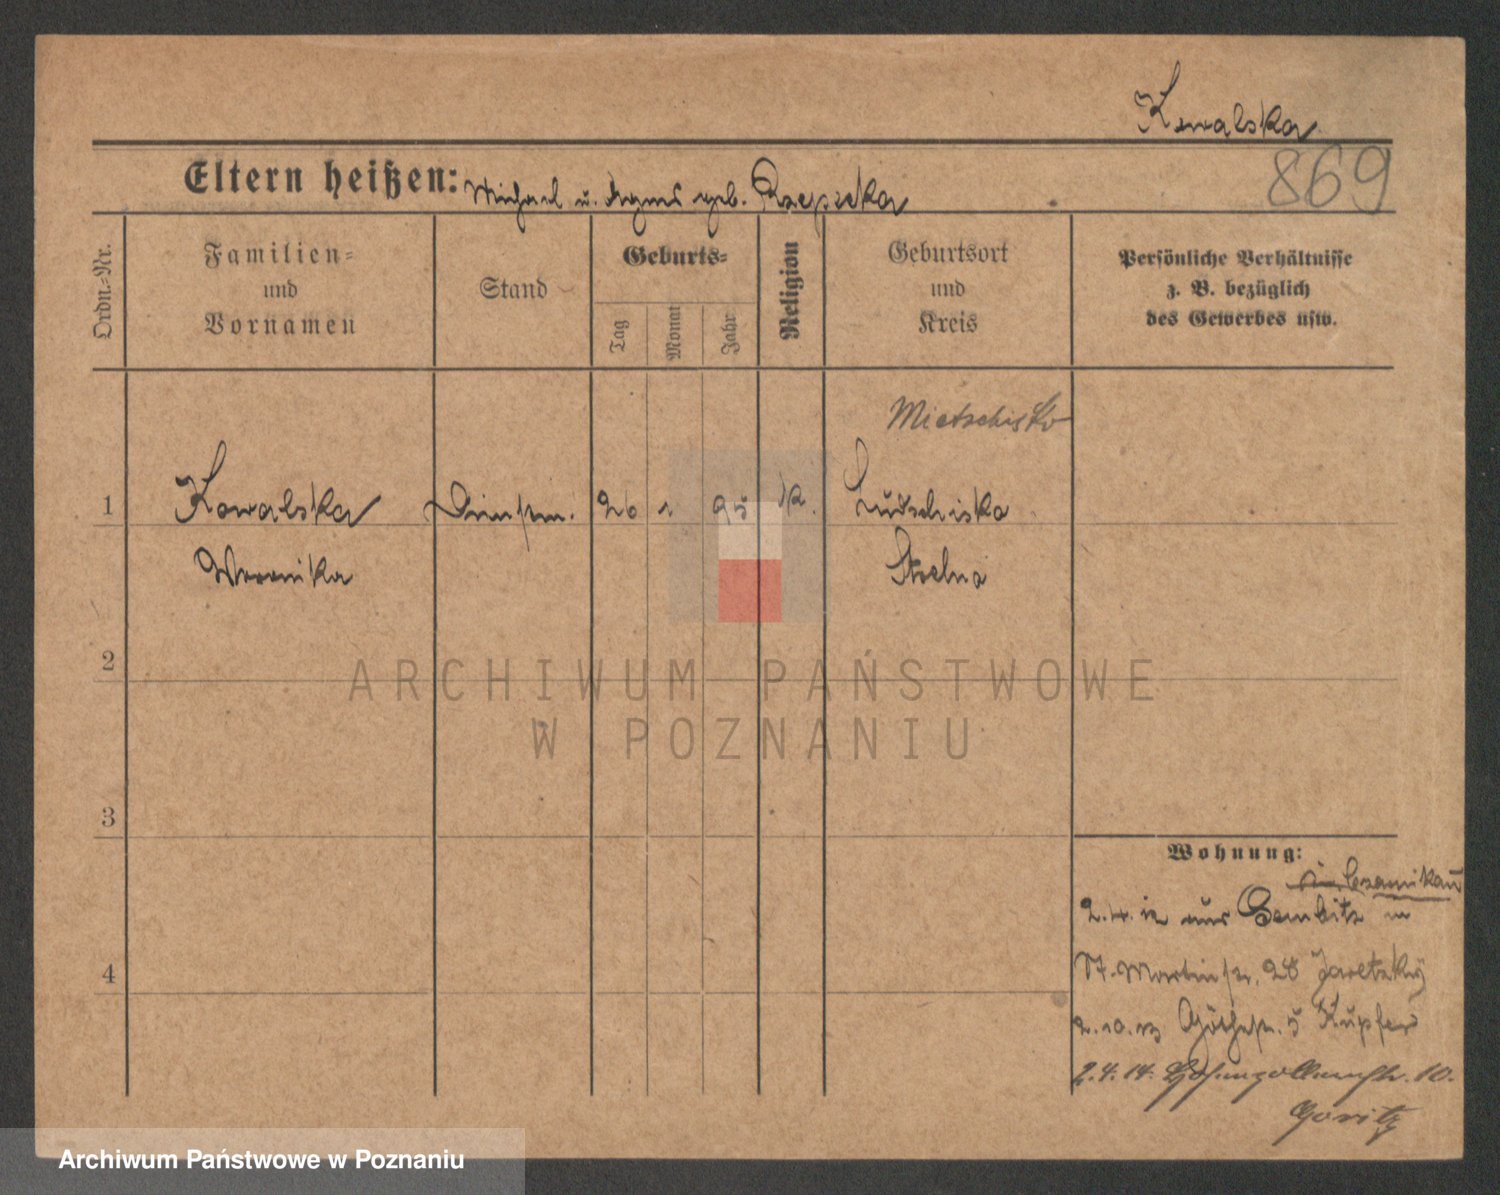 Kowalska
869
Eltern heißen: Michael u. Agnes geb. Rzepecka
Ordn.-Nr.
Familien-
und
Vornamen
Stand
Geburts-
Tag
Monat
Jahr
Religion
Geburtsort
und
Kreis
Persönliche Verhältnisse
z. B. bezüglich
des Gewerbes usw.
Mietschisko
1 Kowalska 26 1 95 k.
Weronika Strelno
2
3
4
ARCHIWUM PAŃSTWOWE
W POZNANIU
Wohnung:
Czarnikau
2.4.12 aus Gembitz in
St. Martinstr. 28 Jaretzky
2.10.13 Göthestr. 5 Kupfer
2.4.14. Hohenzollernstr. 10.
Goritz
Archiwum Państwowe w Poznaniu